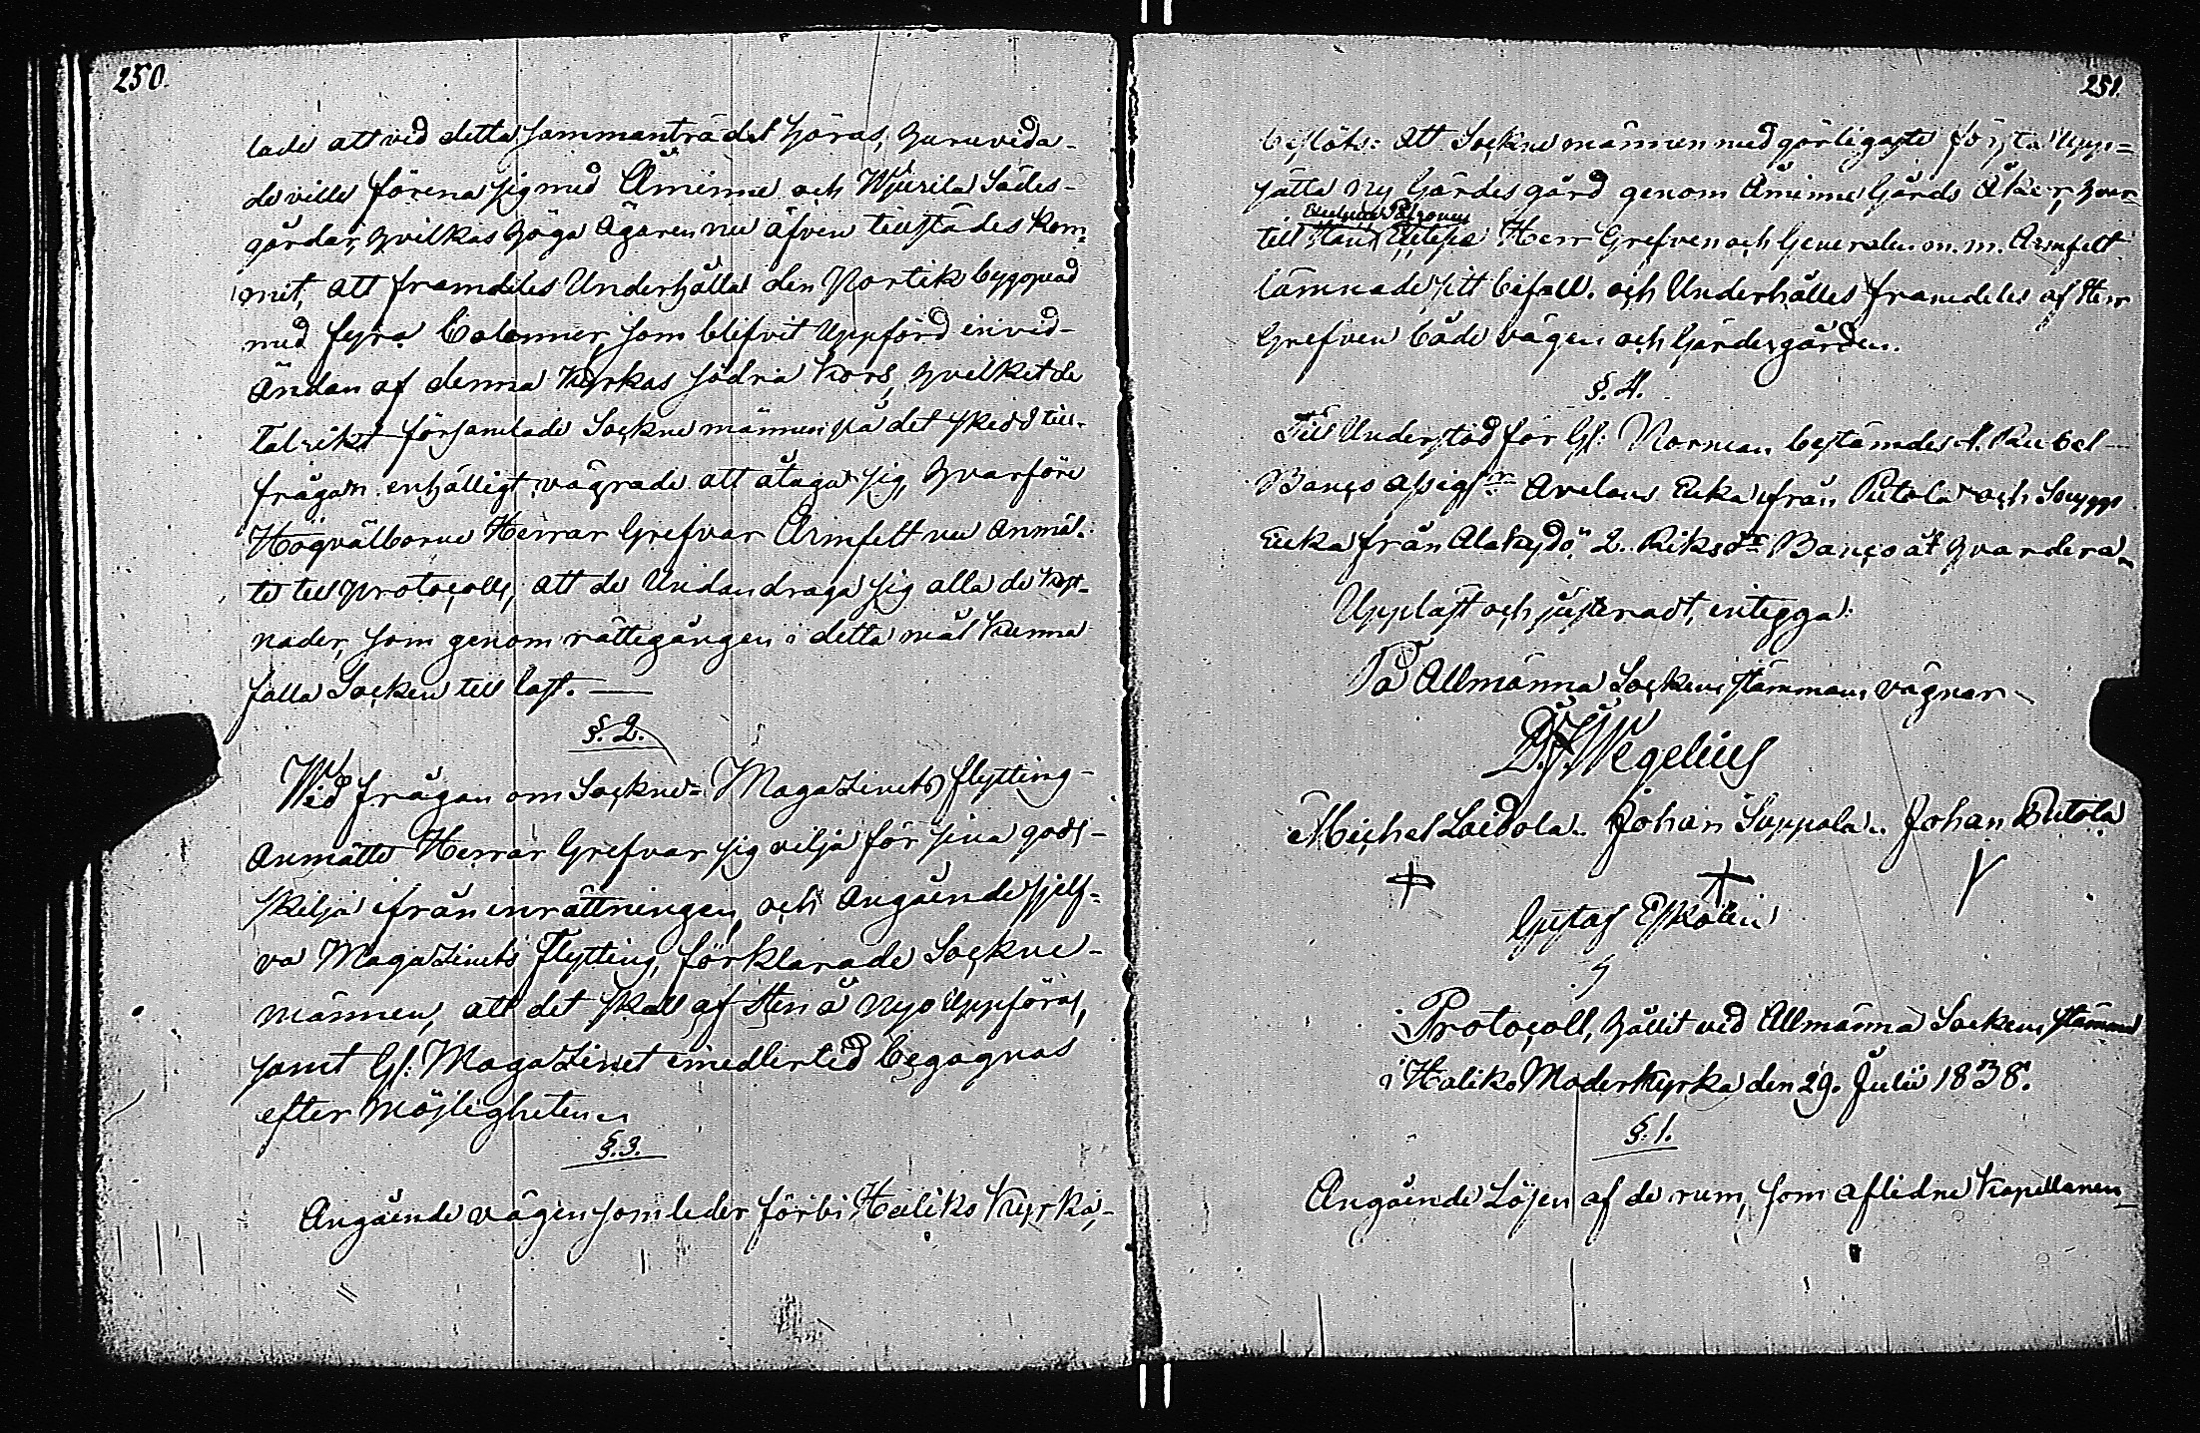 250.
lade att vid detta sammanträdet höras, huruvida
de ville förena sig med Åminne och Wjurila Sädes-
gårdar, hvilkas höga Ägaren nu äfven tillstädes kom-
mit, att framdeles Underhålla den Portik byggnad
med fyra Colonner, som blifvit Uppförd invid
Ändan af denna Kyrkas södra Kors, hvilket de
talrikt församlade Sockne männen på det skedd till-
frågan enhälligt vägrade att åtaga sig, hvarföre
Högvälborne Herrar Grefvar Armfelt nu anmäl-
te till Protocoll, att de Undandraga sig alla de kost-
nader, som genom rättegången i detta mål kunna
falla Socken till last. —
§. 2.
Wid frågan om Sockne- Magazinets flyttning
Anmälte Herrar Grefvar sig vilja för sina gods
skilja ifrån inrättningen, och Angående sjelf-
va Magazinets Flytting, förklarade Sockne-
männen, att det skall af Sten å nyo Uppföras,
samt Gl: Magazinet emedlertid begagnas
efter möjligheten.
§. 3.
Angående vägen som leder förbi Haliko Kyrka,
251.
beslöts: Att Sockne männen med görligaste första Upp-
sätta ny Gärdesgård genom Åminne Gårds Åker, hvar-
till Hans Herr Grefven och Generalen m. m. Armfelt
lämnade sitt bifall. och Underhålles framdeles af Herr
Grefven både vägen och Gärdesgården.
§. 4.
Till Understöd för Gl: Norman bestämdes 1. Rubel
Banco Assign: Avelous Enka från Pietola och
Enka från Alakydö, 2. Riksd. Banco åt hvardera.
Uppläst och justeradt, intyga:
På Allmänna Sockenstämmans vägnar
D. J. Wegelius
Michel Loidola. Johan Suppala. Johan Pietola
Gustaf Eskolin
Protocoll, hållit vid Allmänna Sockenstämma
i Haliko Moderkyrka den 29. Julii 1838.
§. 1.
Angående Lösen af de rum, som aflidne Kapellanen